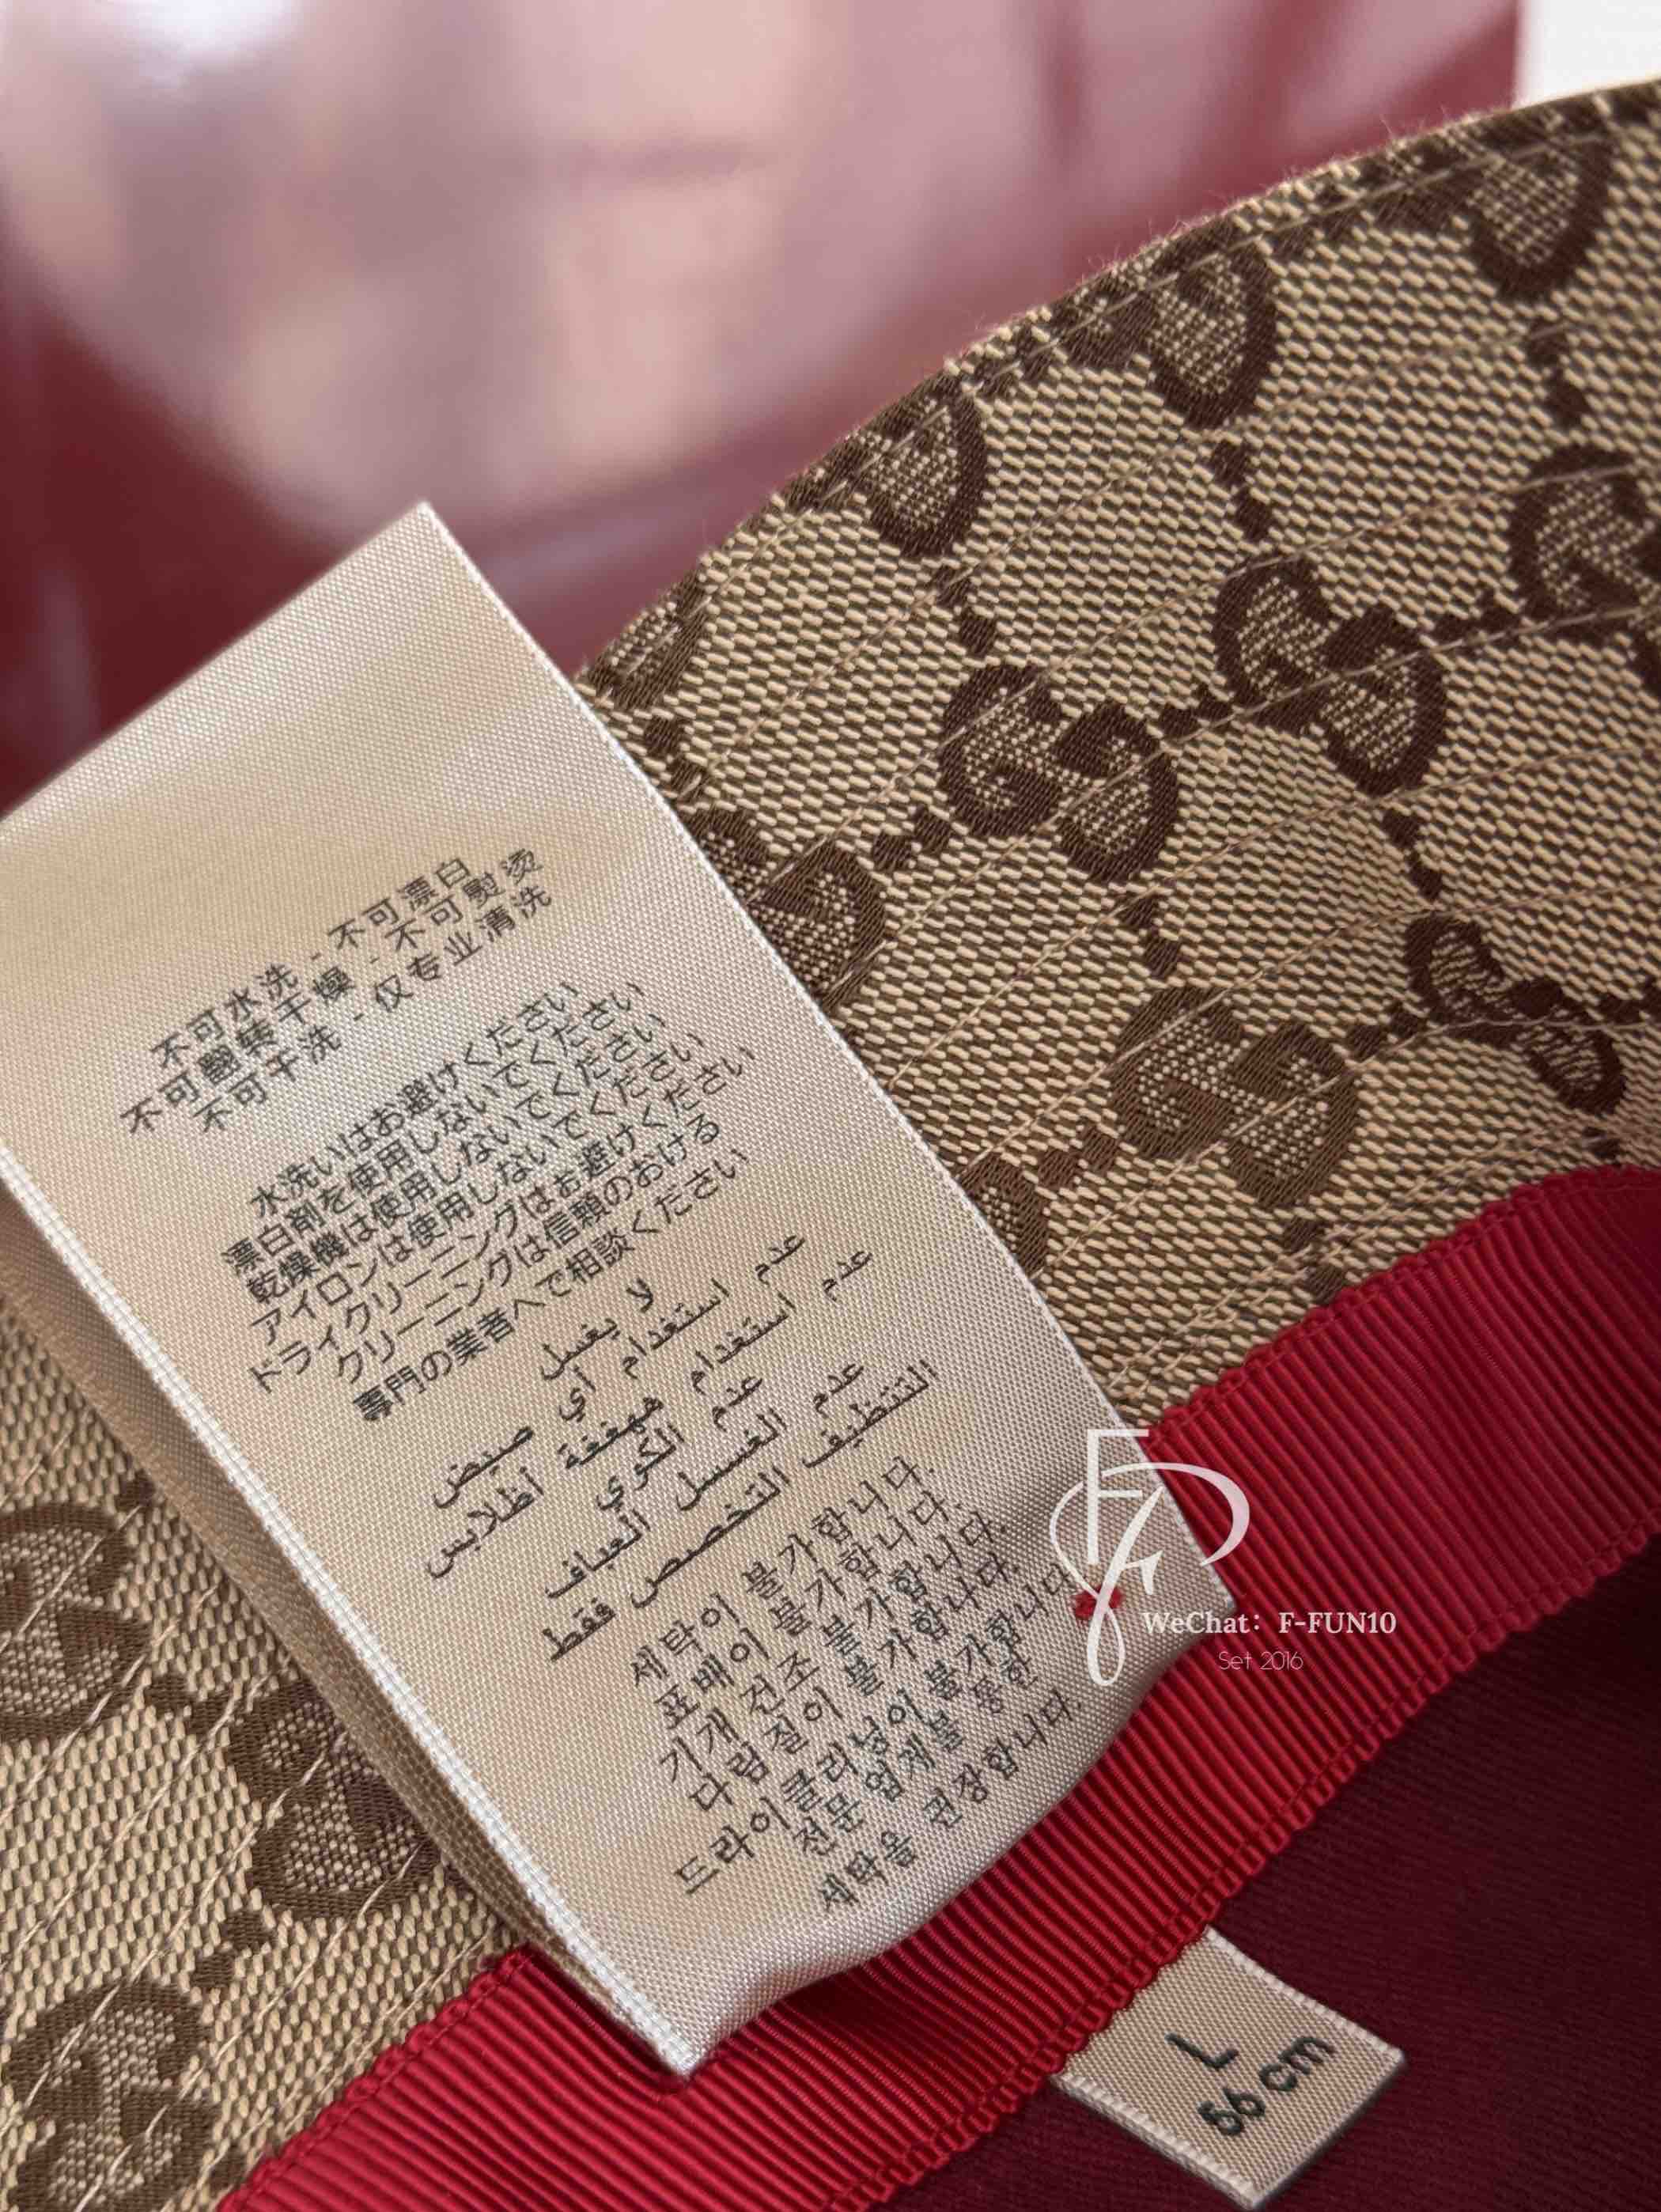 不可水洗 - 不可漂白
不可翻转干燥 - 不可熨烫
不可干洗 - 仅专业清洗
水洗いはお避けください
漂白剤を使用しないでください
乾燥機は使用しないでください
アイロンは使用しないでください
ドライクリーニングはお避けください
クリーニングは信頼のおける
専門の業者へで相談ください
لا يغسل
عدم استغدام أي صيض
عدم استغدام مهففة أظلابس
عدم الكوي
عدم الغسيل العباف
التنظيف التخصص فقط
세탁이 불가합니다.
표배이 불가합니다.
기개 건조 불가합니다.
다림질이 불가합니다.
드라이클리닝이 불가합니다
전문 업계블 통한
세탁을 권장합니다.
WeChat：F-FUN10
Set 2016
L
56 cm